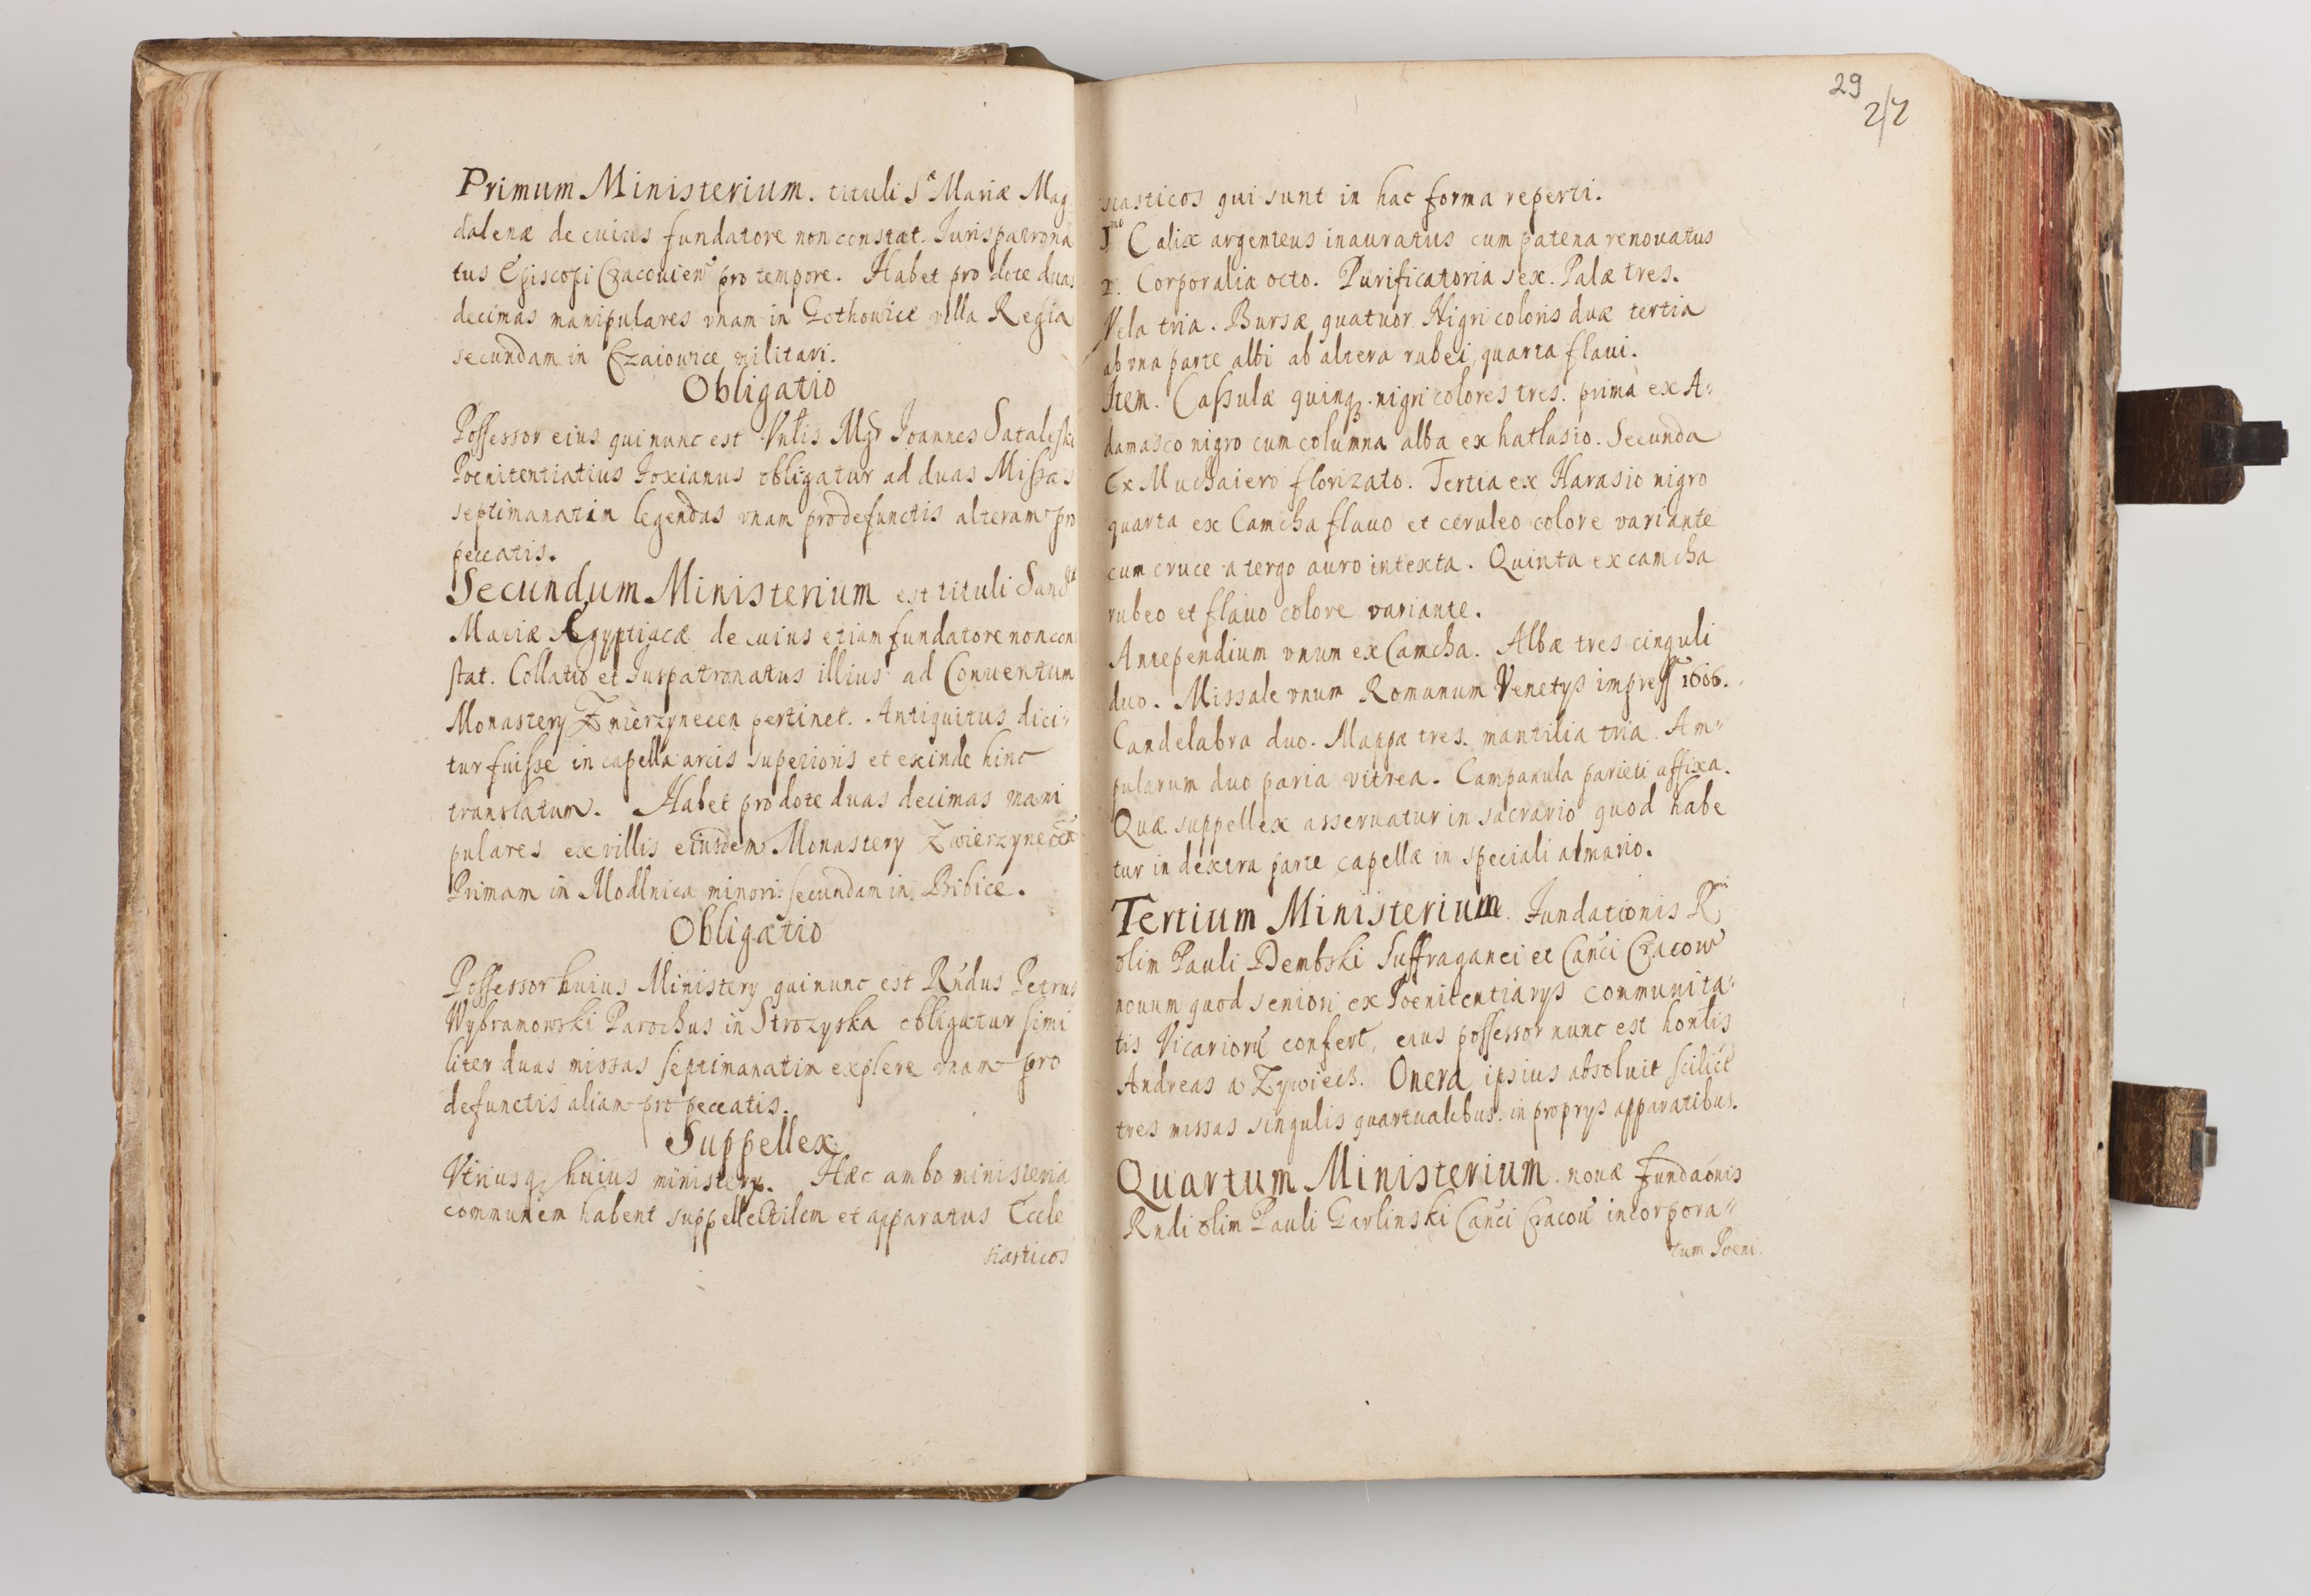 Primum Ministerium. tituli Sᵃ Mariæ Mag
dalenæ de cuius fundatore non constat. Iurispatrona
tus Episcopi Cracouien̄ pro tempore. Habet pro dote duas
decimas manipulares vnam in Gothowice villa Regia
secundam in Czaiowice militari.
Obligatio
Possessor eius qui nunc est Vnlis Mgr Joannes Sataleski
Poenitentiarius Joxianus obligatur ad duas Missas
septimanatim legendas vnam pro defunctis alteram pro
peccatis.
Secundum Ministerium est tituli Sanctæ
Mariæ Ægyptiacæ de cuius etiam fundatore non con
stat. Collatio et Iuspatronatus illius ad Conuentum
Monastery Zwierzynecen pertinet. Antiquitus dici-
tur fuisse in capella arcis superioris et exinde hinc
translatum. Habet pro dote duas decimas mani
pulares ex villis eiusdem Monastery Zwierzynecen
Primam in Modlnica minori: secundam in Bibice.
Obligatio
Possessor huius Ministery qui nunc est Rñdus Petrus
Wybranowski Parochus in Strozyska obligatur simi
liter duas missas septimanatim explere vnam pro
defunctis aliam pro peccatis.
Suppellex
Vtriusq; huius ministery. Hæc ambo ministeria
communem habent suppellectilem et apparatus Eccle
siasticos
29
27
siasticos qui sunt in hac forma reperti.
1ᵐᵒ Calix argenteus inauratus cum patena renouatus
2. Corporalia octo. Purificatoria sex. Palæ tres.
Vela tria. Bursæ quatuor Nigri coloris duæ tertia
ab vna parte albi ab altera rubei, quarta flaui.
Item. Cassulæ quinq; nigri colores tres. prima ex A-
damasco nigro cum columna alba ex hatlasio. Secunda
Ex Muchaiero florizato. Tertia ex Harasio nigro
quarta ex Camcha flauo et ceruleo colore variante
cum cruce a tergo auro intexta. Quinta ex camcha
rubeo et flauo colore variante.
Antependium vnum ex Camcha. Albæ tres cinguli
duo. Missale vnum Romanum Venetys impress 1606.
Candelabra duo. Mappa tres. mantilia tria. Am-
pularum duo paria vitrea. Campanula parieti affixa.
Quæ suppellex asseruatur in sacrario quod habe
tur in dextra parte capellæ in speciali almario.
Tertium Ministerium. Fundationis Rᵐⁱ
olim Pauli Dembski Suffraganei et Cañci Cracow̄
nouum quod seniori ex Poenitentiarys communita-
tis Vicariorū confert, eius possessor nunc est honlis
Andreas a Zywiech. Onera ipsius absoluit scilicet
tres missas singulis quartualibus. in proprys apparatibus.
Quartum Ministerium. nouæ fundaōnis
Rndi olim Pauli Garlinski Cañci Cracoū incorpora-
tum Poeni.